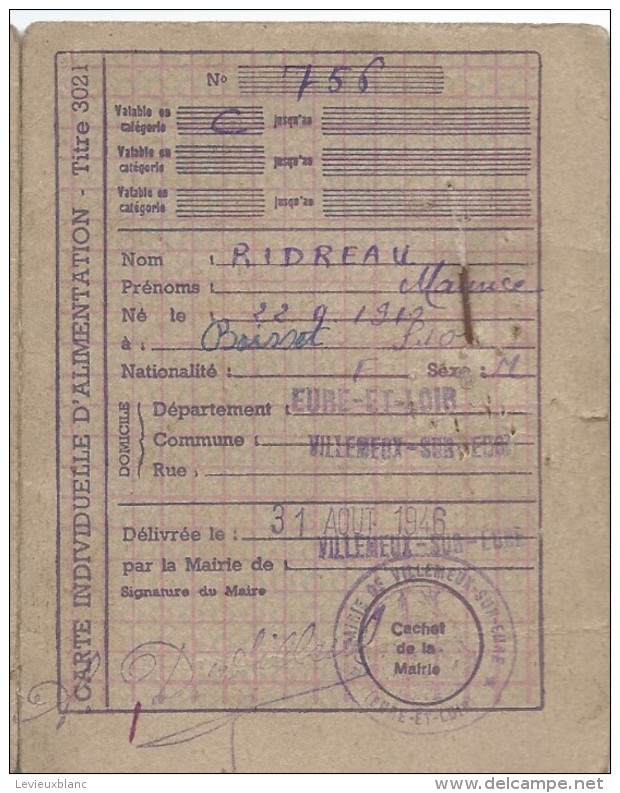 CARTE INDIVIDUELLE D'ALIMENTATION - Titre 3021
No 756
Valable en catégorie C jusqu'au
Valable en catégorie jusqu'au
Valable en catégorie jusqu'au
Nom : RIDREAU
Prénoms : Maurice
Né le : 22 9
à : Boisset
Nationalité : F Séxe : M
DOMICILE
Département : EURE-ET-LOIR
Commune : VILLEMEUX-SUR-EURE
Rue :
Délivrée le : 31 AOUT 1946
par la Mairie de : VILLEMEUX-SUR-EURE
Signature du Maire
MAIRIE DE VILLEMEUX-SUR-EURE
Cachet
de la
Mairie
(EURE-ET-LOIR)
Levieuxblanc
delcampe.net